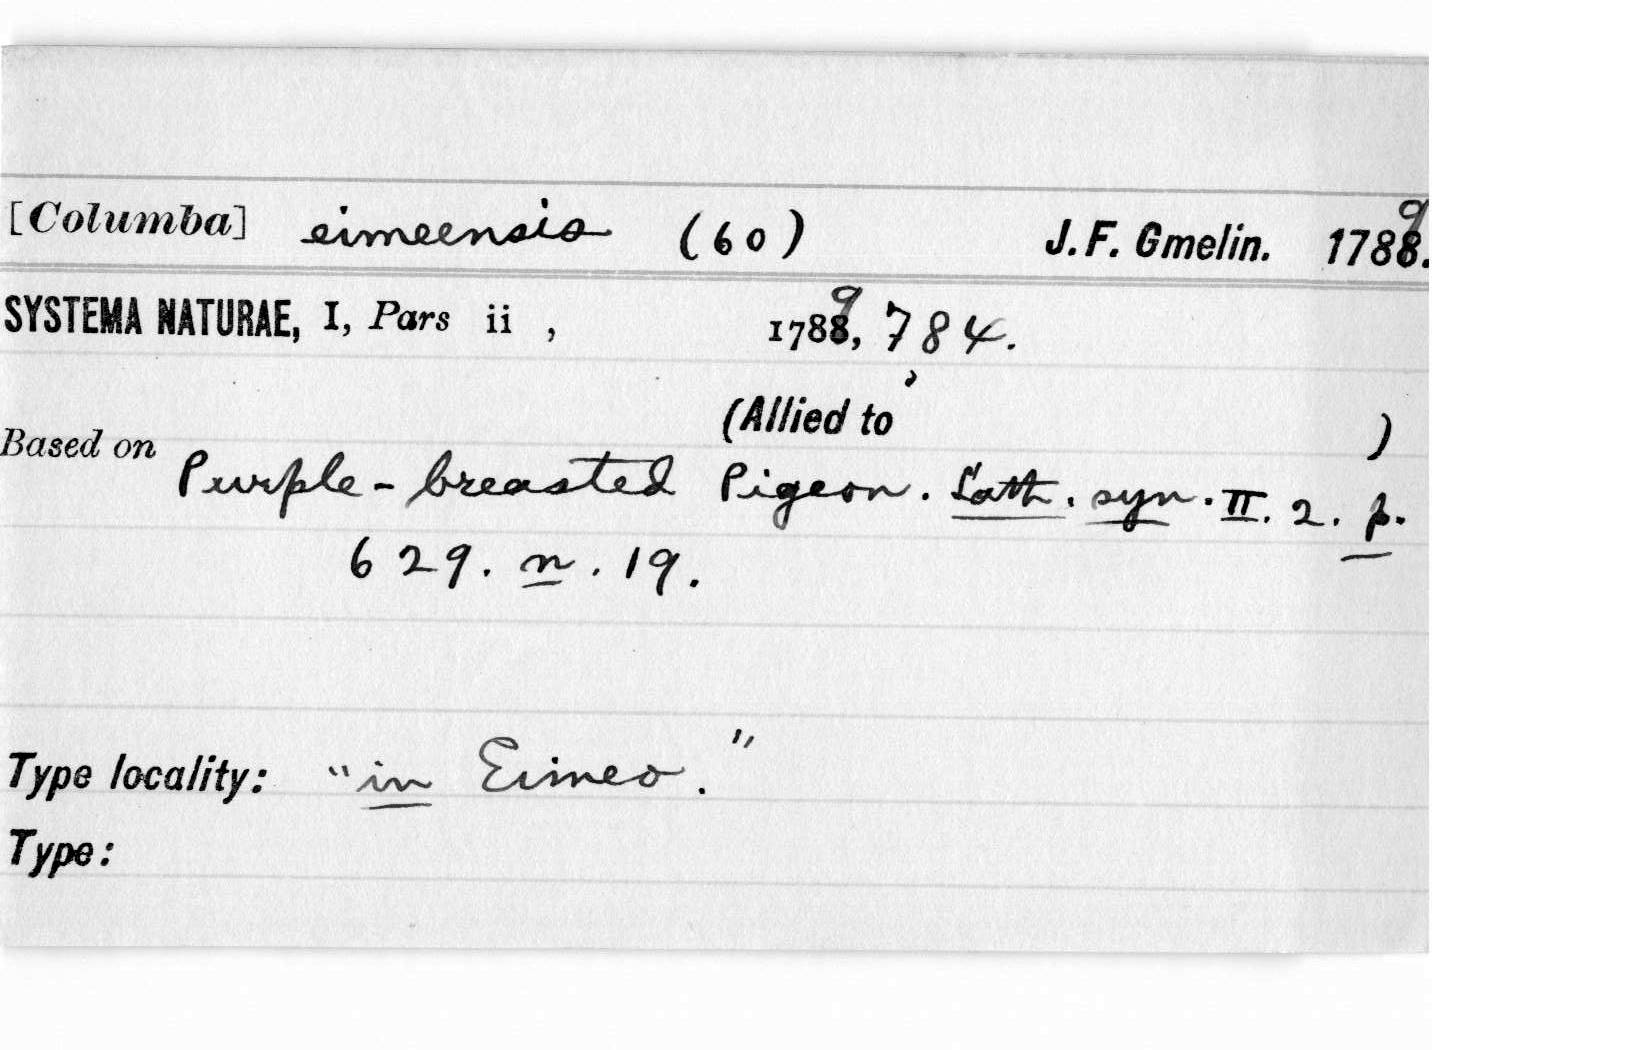 [Columba] eimeensis (60) J. F. Gmelin. 1789.
SYSTEMA NATURAE, I, Pars ii , 1789, 784.
(Allied to )
Based on Purple-breasted Pigeon. Lath. syn. II. 2. p.
629. n. 19.
Type locality: "in Eimeo."
Type: